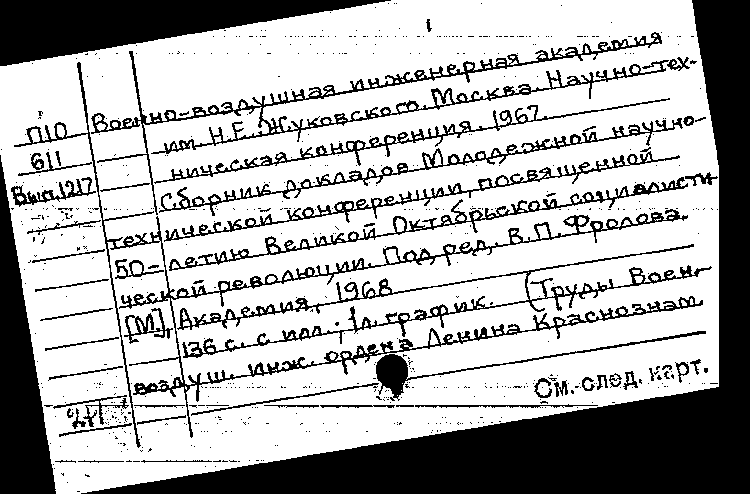 1
Военно-воздушная инженерная академия
П10 им. Н.Е. Жуковского. Москва. Научно-тех-
611 ническая конференция. 1967.
Вып.1217 Сборник докладов Молодежной научно-
технической конференции, посвященной
50-летию Великой Октябрьской социалисти
ческой революции. Под ред. В.П. Фролова.
[М], Академия, 1968
136 с. с илл.; 1л. график. (Труды Воен.
воздуш. инж. ордена Ленина Краснознам.
См. след. карт.